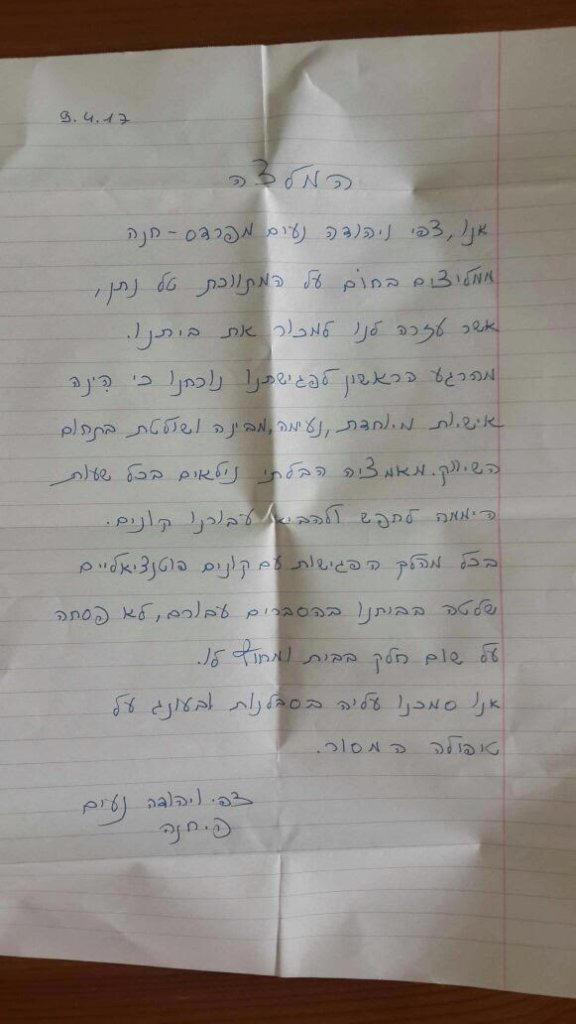 9.4.17
המלצה
אנו, צפי ויהודה נעים מפרדס - חנה
ממליצים בחום על המתווכת טל נתן,
אשר עזרה לנו למכור את ביתנו.
מהרגע הראשון לפגישתנו נוכחנו כי הינה
אישיות מיוחדת, נעימה, מבינה ושולטת בתחום
השיווק. מאמציה הבלתי נילאים בכל שעות
היממה לחפש ולהביא עבורנו קונים.
בכל מהלך הפגישות עם קונים פוטנציאליים
שלטה בביתנו בהסברים עבורם, לא פסחה
על שום חלק בבית ומחוץ לו.
אנו סמכנו עליה בסבלנות ובעונג על
טיפולה המסור.
צפי ויהודה נעים
פ. חנה